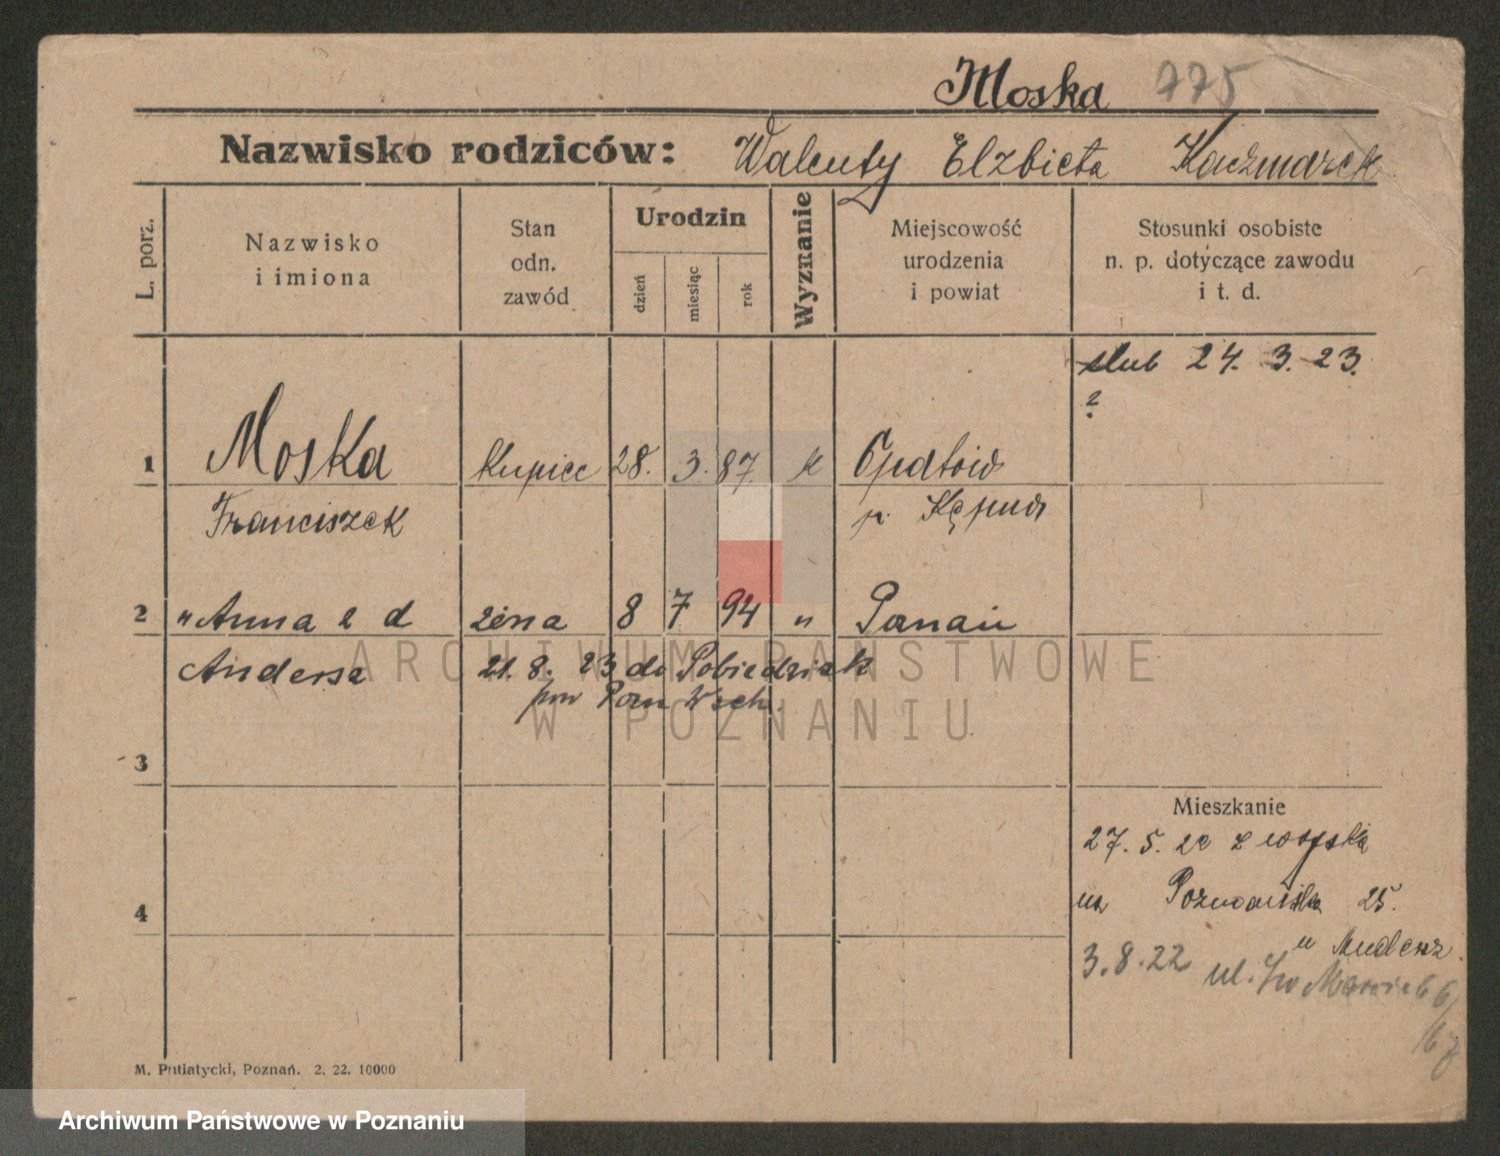 Moska 775
Nazwisko rodziców: Walenty Elzbieta Kaczmarek
L. porz.
Nazwisko
i imiona
Stan
odn.
zawód
Urodzin
dzień
miesiąc
rok
Wyznanie
Miejscowość
urodzenia
i powiat
Stosunki osobiste
n. p. dotyczące zawodu
i t. d.
ślub 24. 3. 23.
?
1 Moska kupiec 28. 3. 87. k Opatów
Franciszek p. Kępno
2 " Anna z d żona 8 7 94 "
Andersz 21. 8. 23 do Pobiedzisk
pow Pozn Wsch.
3
Mieszkanie
27. 5. 22 z wojska
4
na Poznańska 25.
u
3. 8. 22 ul. Św Marcin 66/
M. Putiatycki, Poznań. 2. 22. 10000
ARCHIWUM PAŃSTWOWE
W POZNANIU
Archiwum Państwowe w Poznaniu